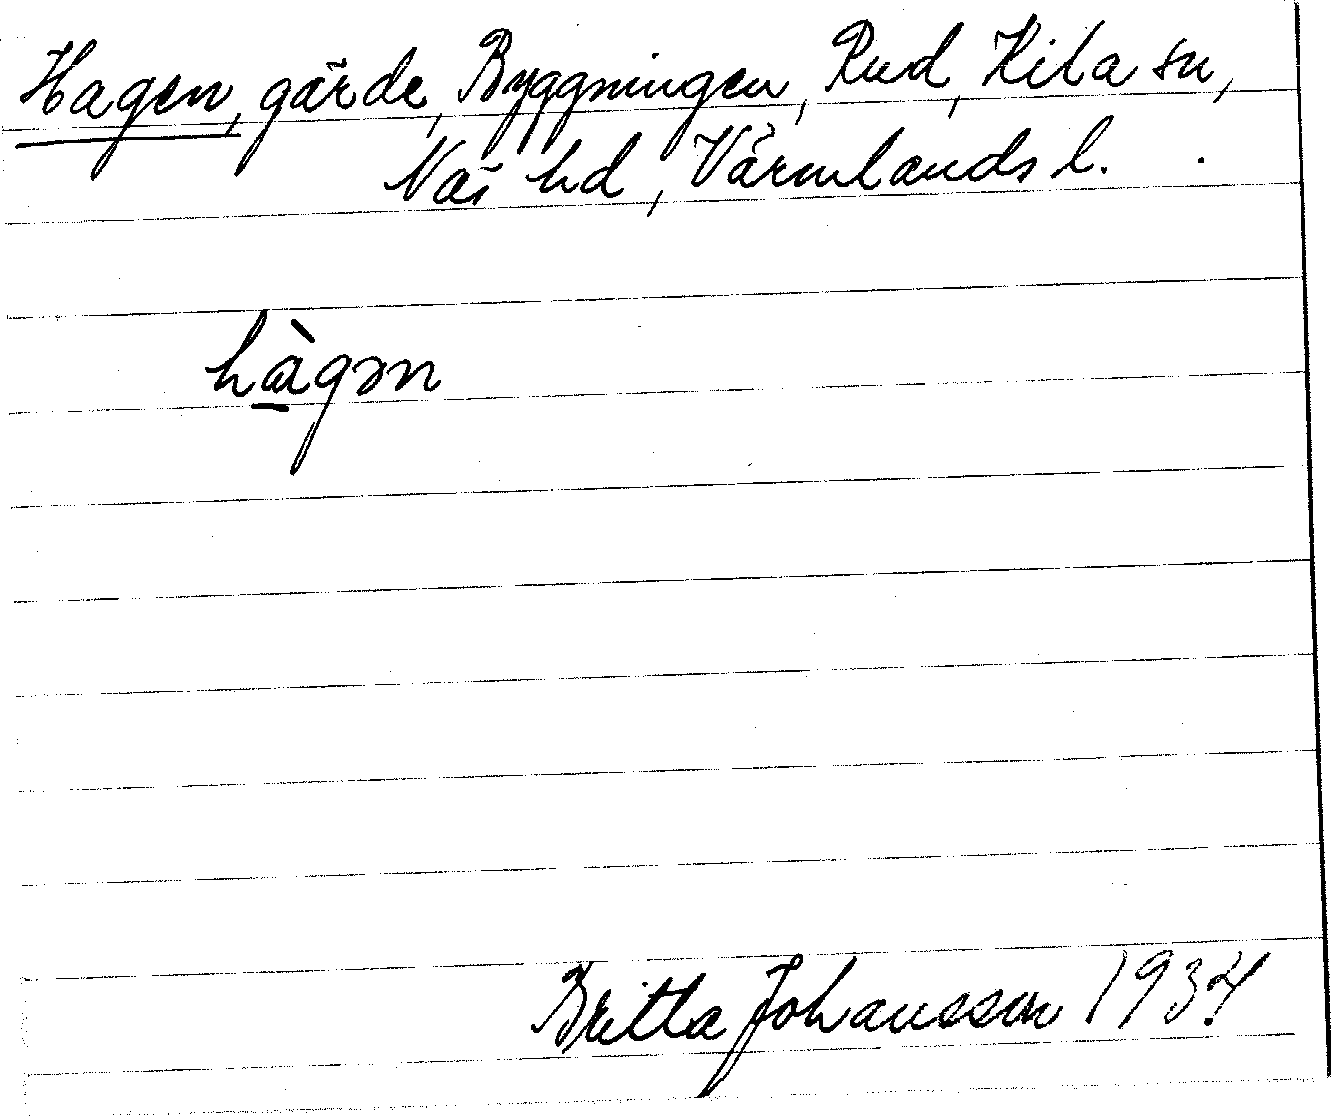 Hagen, gärde, Byggningen, Rud, Kila sn,
Näs hd, Värmlands l.
hàgən
Britta Johansson 1934